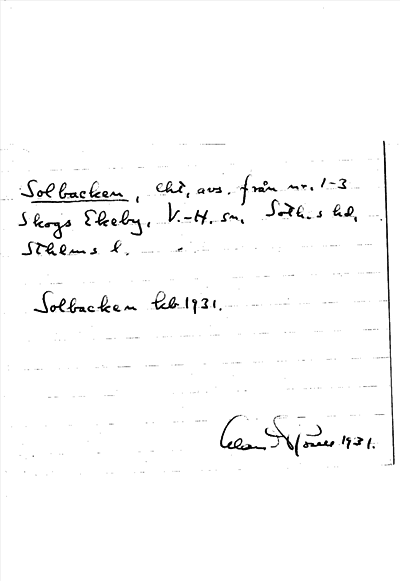 Solbacken, cht, avs. från nr. 1-3
Skogs Ekeby, V.-H. sn, Soth.s hd,
Sthlms l.
Solbacken kb 1931.
1931.